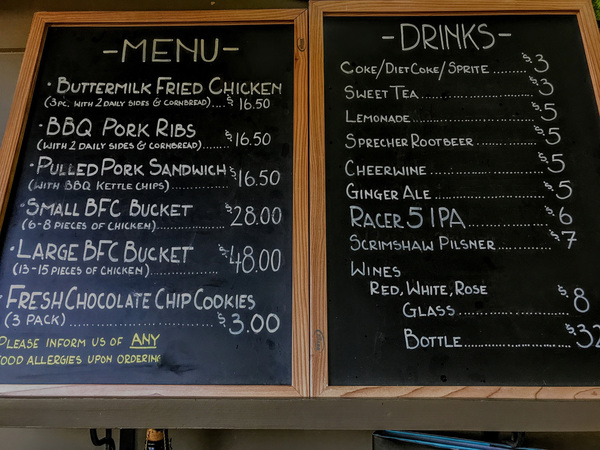 -MENU-
• BUTTERMILK FRIED CHICKEN
(3 PC. WITH 2 DAILY SIDES & CORNBREAD).... $16.50
• BBQ PORK RIBS
(WITH 2 DAILY SIDES & CORNBREAD)....... $16.50
• PULLED PORK SANDWICH $16.50
(WITH BBQ KETTLE CHIPS)
• SMALL BFC BUCKET
(6-8 PIECES OF CHICKEN) $28.00
• LARGE BFC BUCKET
(13-15 PIECES OF CHICKEN) $48.00
FRESH CHOCOLATE CHIP COOKIES
(3 PACK) $3.00
PLEASE INFORM US OF ANY
FOOD ALLERGIES UPON ORDERING
-DRINKS-
COKE/DIET COKE/SPRITE ........ $3
SWEET TEA $3
LEMONADE $5
SPRECHER ROOTBEER $5
CHEERWINE $5
GINGER ALE $5
RACER 5 IPA $6
SCRIMSHAW PILSNER $7
WINES
RED, WHITE, ROSE
GLASS $8
BOTTLE $32